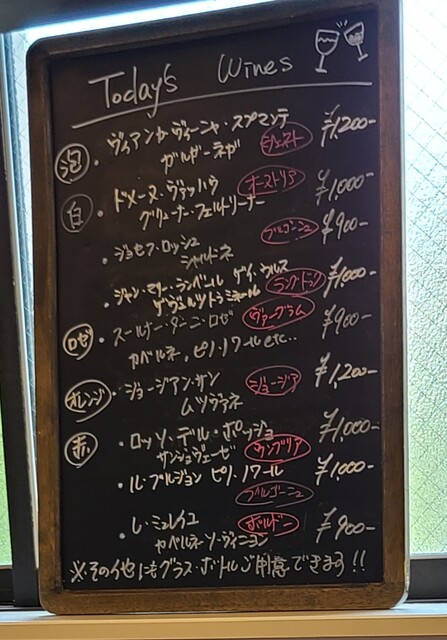 Today's Wines
泡 ・ヴィアンカ・ヴィーニャ・スプマンテ ¥1200-
ガルガーネガ
白 ・ドメーヌ・ヴァッハウ オーストリア ¥1,000-
グリューナー・フェルトリーナー
・ジョセフ・ロッシュ ブルゴーニュ ¥900-
シャルドネ
・ジャン・マリー・ランベール ゲイ・ウルス ¥1,000-
ゲヴュルツトラミネール ラングドック
ロゼ ・スールナー・ダーニ・ロゼ ヴァーグラム ¥900-
カベルネ、ピノ・ノワール etc..
オレンジ ・ジョージアン・サン ジョージア ¥1,200-
ムツヴァネ
赤 ・ロッソ・デル・ポッジョ ¥1,000-
サンジョヴェーゼ ウンブリア
・ル・プルジョン ピノ・ノワール ¥1,000-
ブルゴーニュ
・レ・ミュレイユ ボルドー ¥900-
カベルネ・ソーヴィニヨン
※その他にもグラス・ボトルご用意できます!!